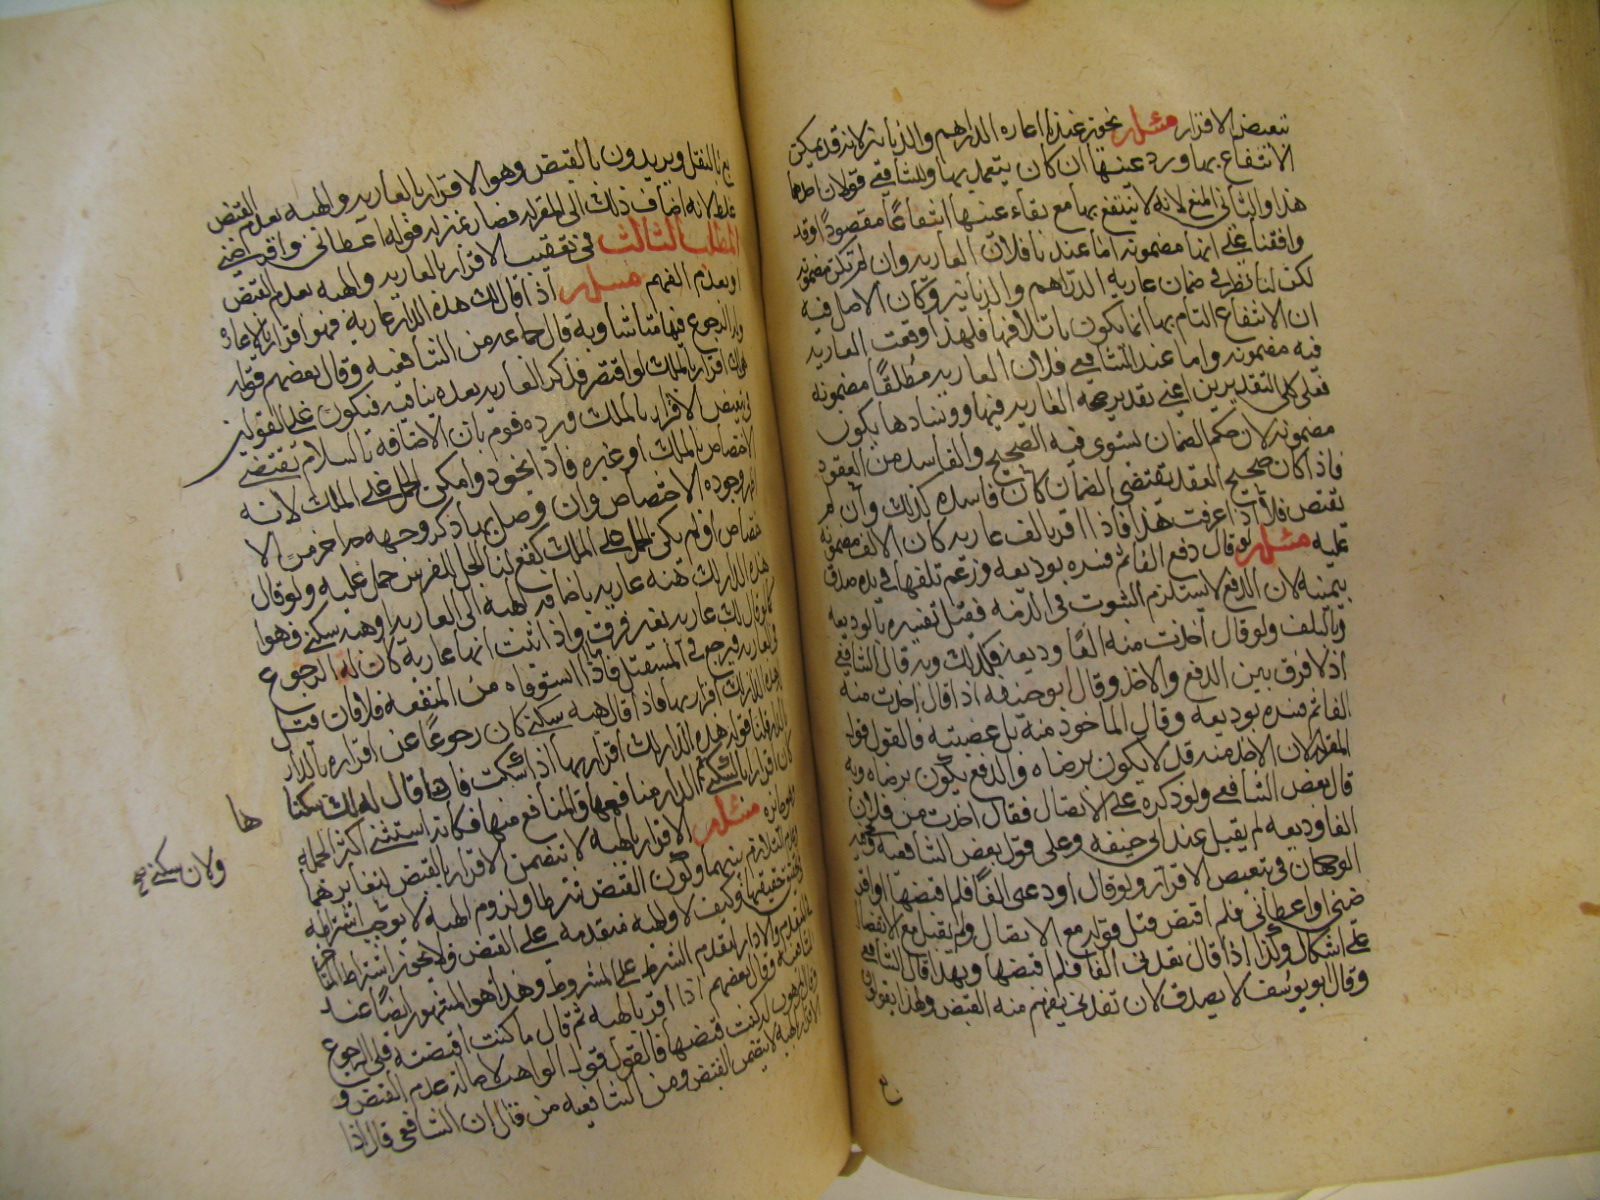 تبعيض الاقرار مسئلة يجوز عندنا اعارة الدراهم والدنانير لانه قد يمكن
الانتفاع بها ورد عينها ان كان يتعمل بها وللشافعي قولان احدهما
هذا والثاني المنع لانه لا ينتفع بها مع بقاء عينها انتفاعا مقصودا وقد
وافقنا على انها مضمونة اما عندنا فلان العارية وان لم تكن مضمونة
لكن لنا نظر في ضمان عارية الدراهم والدنانير وكان الاصل فيه
ان الانتفاع التام بها انما يكون باتلافها فلهذا وقعت العارية
فيه مضمونة واما عند الشافعي فلان العارية مطلقا مضمونة
فعلى كلي التقديرين اعني تقدير صحه العارية فيها وفسادها يكون
مضمونة لان حكم الضمان يستوي فيه الصحيح والفاسد من العقود
فاذا كان صحيح العقد يقتضي الضمان كان فاسده كذلك وان لم
يقتض فلا اذا عرفت هذا فاذا اقر بالف عارية كان الالف مضمونة
عليه مسئلة لو قال دفع الي الفا ثم فسره بوديعه وزعم تلفها في يده صدق
بيمينه لان الدفع لا يستلزم الثبوت في الذمه فقبل تفسيره بالوديعه
وبالتلف ولو قال اخذت منه الفا وديعة فكذلك وبه قال الشافعي
اذ لا فرق بين الدفع والاخذ وقال ابو حنيفه اذا قال اخذت منه
الفا ثم فسره بوديعه وقال الماخوذ منه بل غصبتيه فالقول قول
المقر له لان الاخذ منه قد لا يكون برضاه والدفع يكون برضاه وبه
قال بعض الشافعي ولو ذكره على الاتصال فقال اخذت من فلان
الفا وديعه لم يقبل عند ابي حنيفه وعلى قول بعض الشافعيه يجئ فيه
الوجهان في تبعيض الاقرار ولو قال اودعني الفا فلم اقبضها او اقر
ضني او اعطاني فلم اقبض قبل قوله مع الاتصال ولم يقبل مع الانفصال
على اشكال وكذا اذا قال نقدني الفا فلم اقبضها وبهذا قال الشافعي
وقال ابو يوسف لا يصدق لان نقدني يفهم منه القبض ولهذا يقولون
بع
بع بالنقل ويريدون بالقبض وهو الاقرار بالعارية والهبة بعدم القبض
غلط لانه اضاف ذلك الى المقر له فصار بمنزلة قوله اعطاني واقرضني
المطلب الثالث في تعقيب الاقرار بالعارية والهبة بعدم القبض
او بعدم الفهم مسئلة اذا قال لك هذه الدار عارية فهو اقرار بالاعارة
وله الرجوع فيها متى شاء وبه قال جماعة من الشافعيه وقال بعضهم قوله
لك اقرار بالملك لو اقتصر فذكر العارية بعده ينافيه فيكون على القولين
في تبعيض الاقرار بالملك ورده قوم بان الاضافة باللام تقتضي
الاختصاص بالملك او غيره فاذا تجرد وامكن الحمل على الملك لانه
اظهر وجوه الاختصاص وان وصل بها ذكر وجهه من الا
ختصاص او لم يكن الحمل على الملك كقولنا الجل للفرس حمل عليه ولو قال
هذه الدار لك هبة عارية باضافة الهبة الى العارية او هبة سكنى فهو
كما لو قال لك عارية بغير فرق واذا ثبت انها عارية كان له الرجوع
في العارية فيرجع في المستقبل فاما ما استوفاه من المنفعه فلا فان قيل
هذه الدار لك اقرار بها فاذا قال هبة سكنى كان رجوعا عن اقراره بالدار
قلنا قوله هذه الدار لك اقرار بها اذا سكت فاما قال له لك سكنا
ها
كان اقرارا بالسكنى ولان سكنى صح الدار منافعها والمنافع منها فكانه استثنى اكثر الجملة
وهو جائز مسئلة الاقرار بالهبة لا يتضمن الاقرار بالقبض لتغايرهما
وعدم التلازم بينهما وكون القبض شرطا ولزوم الهبة لا يوجب اشتراطه
في حقيقتها وكيف لا والهبة متقدمة على القبض ولا يجوز اشتراط المتاخر
في المتقدم والا دار لتقدم الشرط على المشروط وهذا هو المشهور ايضا عند
الشافعية وقال بعضهم اذا اقر بالهبة ثم قال ما كنت اقبضته فلي الرجوع
وقال الموهوب له كنت قبضتها فالقول قول الواهب لاصالة عدم القبض و
الاقرار بالهبة لا يتضمن القبض ومن الشافعيه من قال ان الشافعي قال اذا